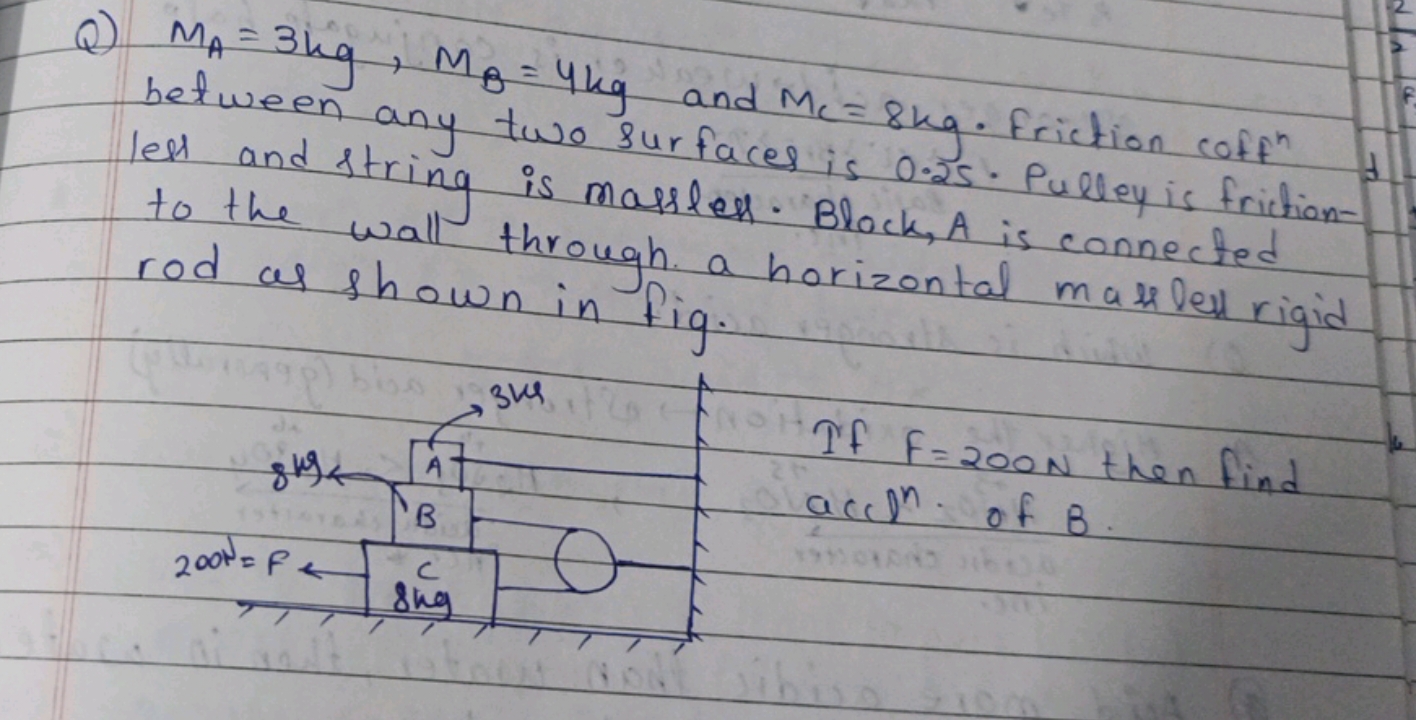 Q) MA = 3kg, MB = 4kg and MC = 8kg. Friction coffn
between any two surfaces is 0.25. Pulley is friction-
less and string is massless. Block, A is connected
to the wall through. a horizontal massless rigid
rod as shown in fig.
3kg
A
8kg
B
200N = F
C
8kg
If F = 200N then find
accln. of B.